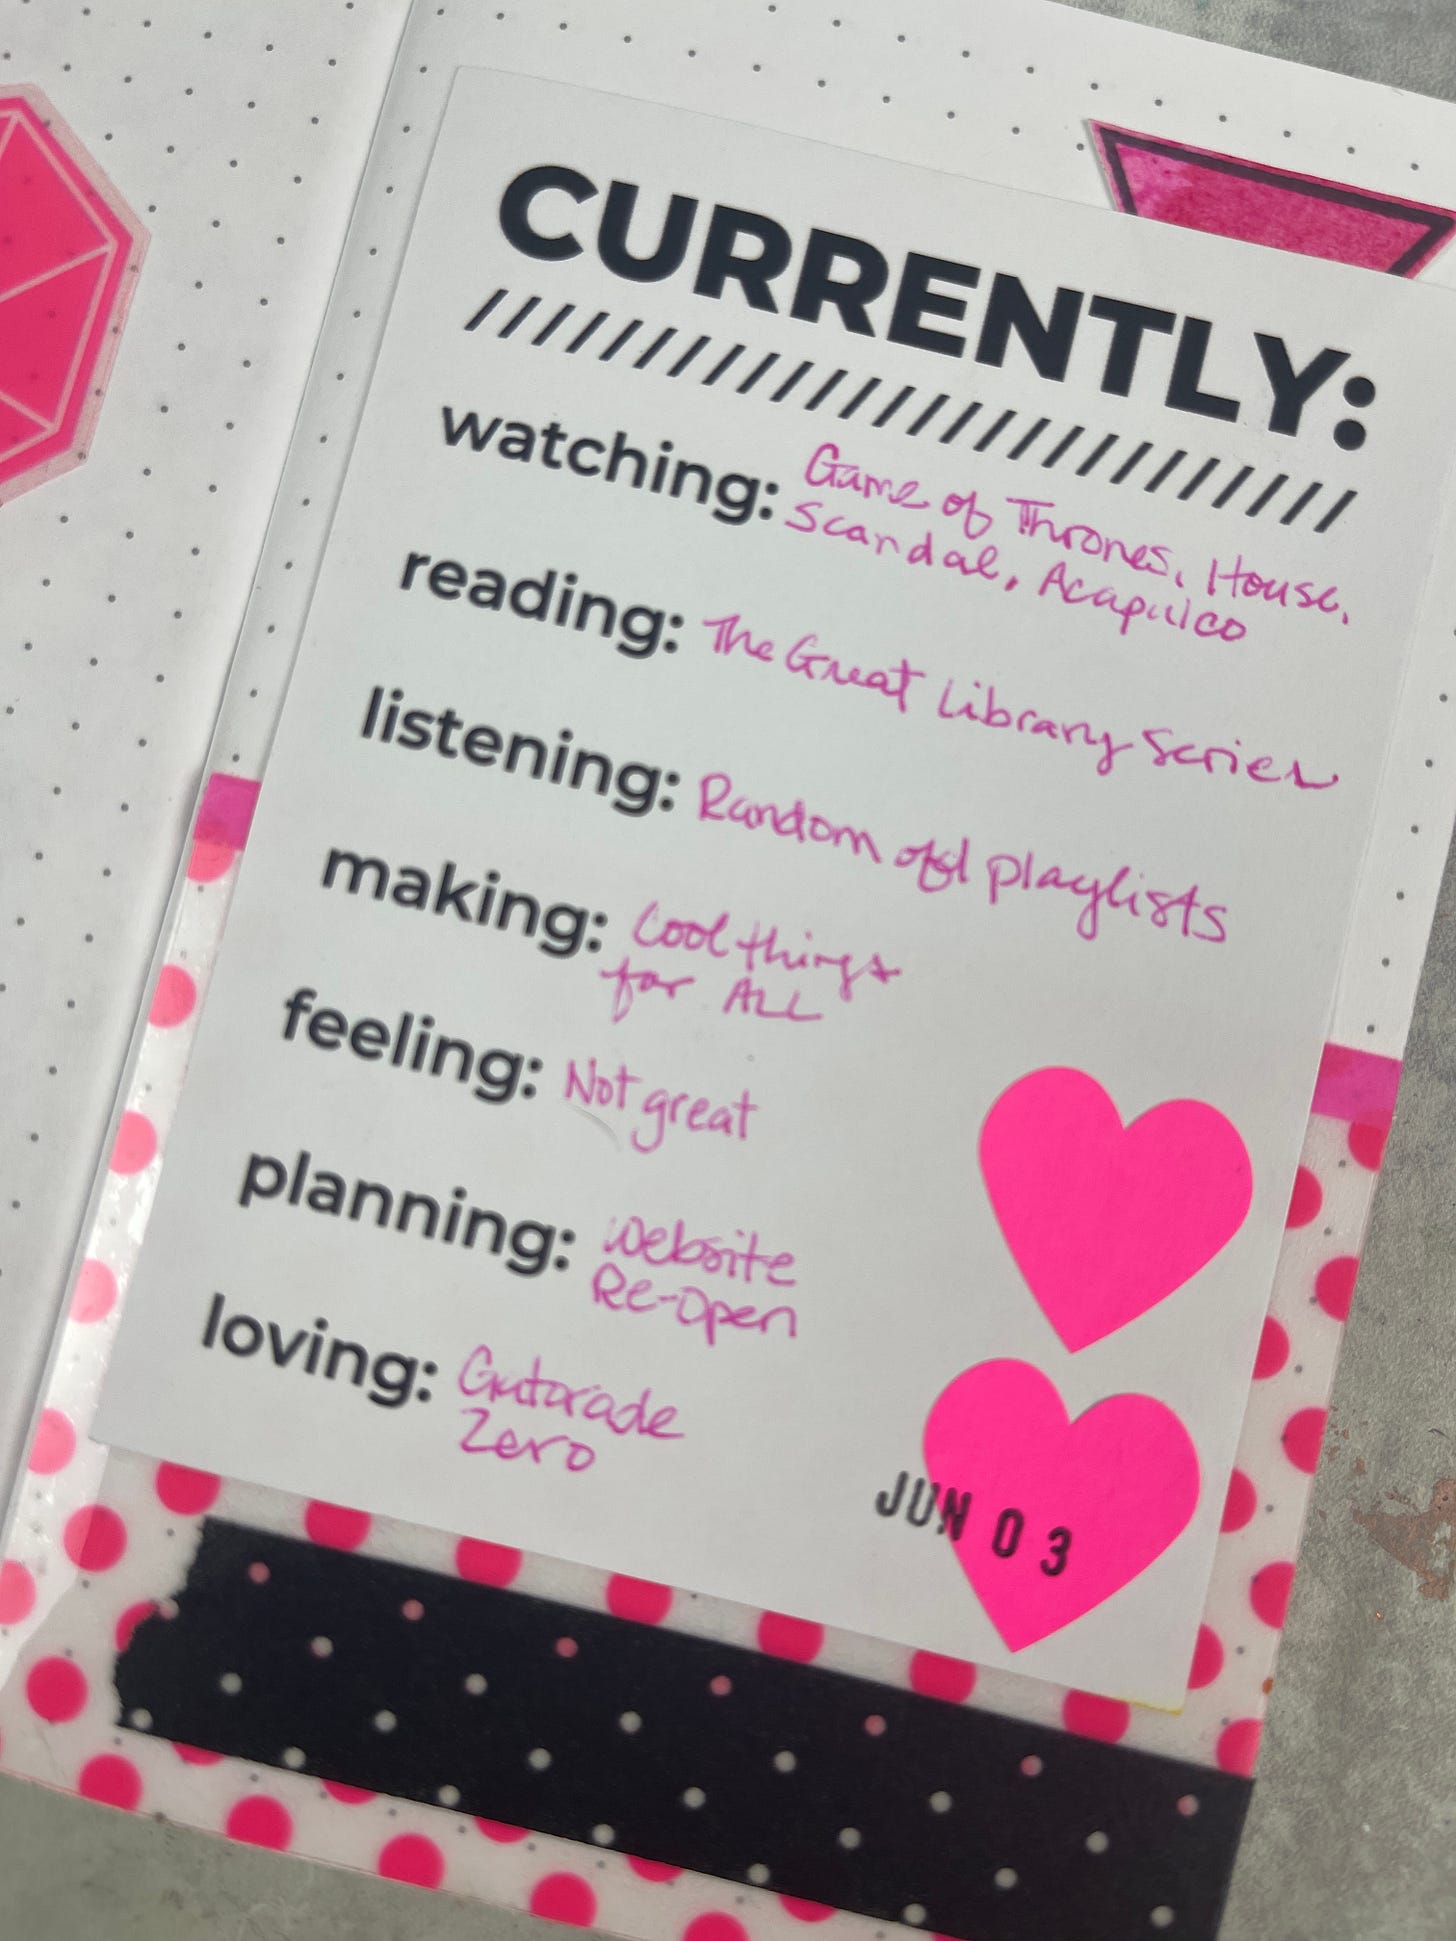 CURRENTLY:
////////////////////////////
watching: Game of Thrones, House,
Scandal, Acapulco
reading: The Great Library Series
listening: Random old playlists
making: Cool things
for ALL
feeling: Not great
planning: Website
Re-Open
loving: Gatorade
Zero
JUN 03